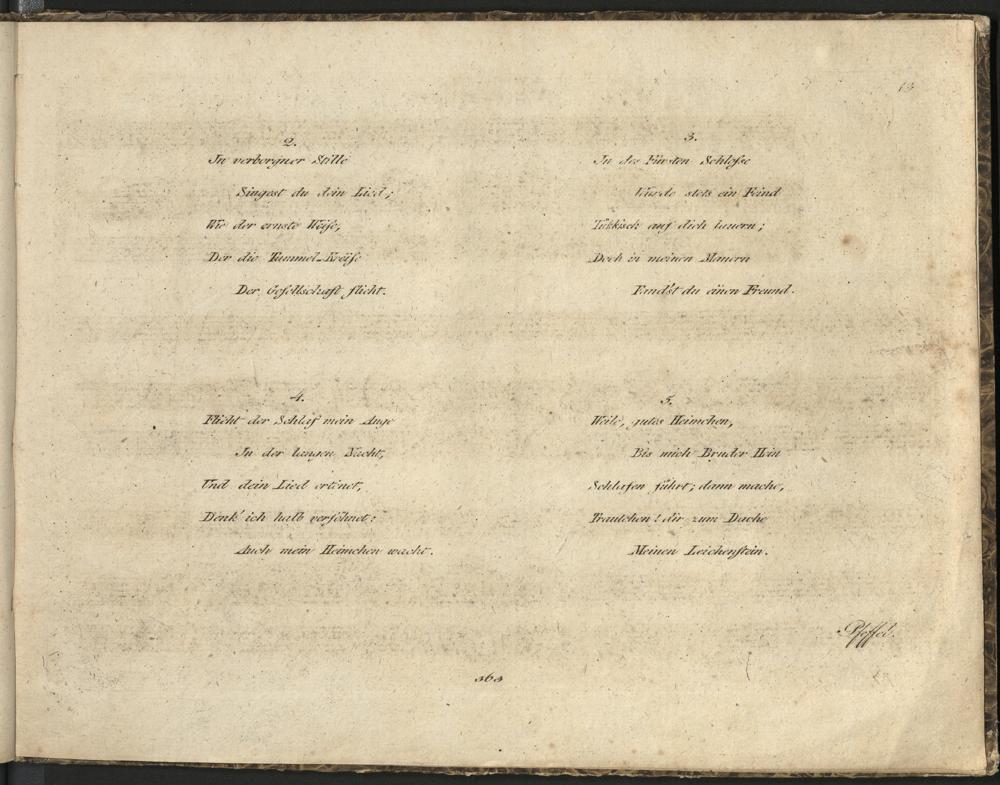 13
2.
In verborgner Stille
Singest du dein Lied;
Wie der ernste Weiſe,
Der die Tummel-Kreiſe
Der Geſellſchaft flieht.
3.
In des Fürsten Schloſse
Würde stets ein Feind
Tükkisch auf dich lauern;
Doch in meinen Mauern
Fandſt du einen Freund.
4.
Flieht der Schlaf mein Auge
In der langen Nacht,
Und dein Lied ertönet,
Denk' ich halb verſöhnet:
Auch mein Heimchen wacht.
5.
Weile, gutes Heimchen,
Bis mich Bruder Hein
Schlafen führt; dann mache,
Trautchen! dir zum Dache
Meinen Leichenſtein.
Pfeffel.
363